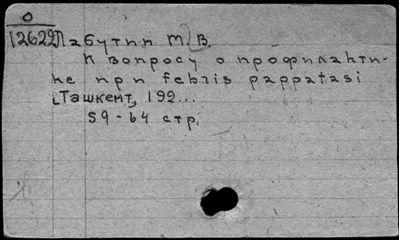 О
12622 Лабутин М. В.
К вопросу о профилакти-
ке при febris pappatasi
[Ташкент, 192...
59-64 стр.